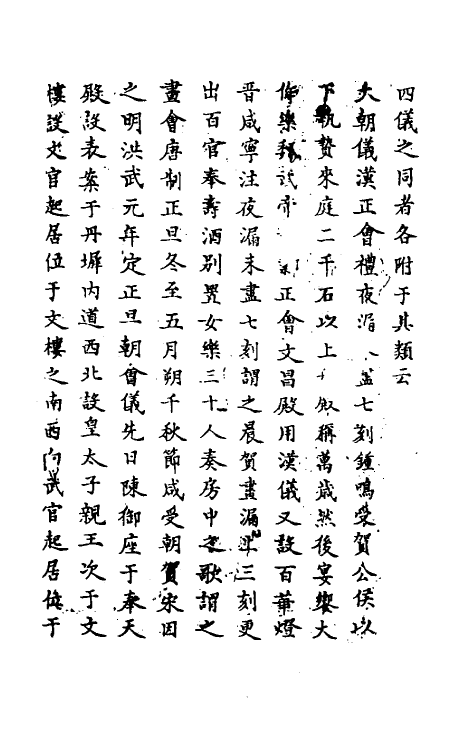 四儀之同者各附于其類云
大朝儀漢正會禮夜漏 盡七刻鍾鳴受賀公侯以
下執贄來庭二千石以上 殿稱萬歲然後宴饗大
作樂 武帝 正會文昌殿用漢儀又設百華燈
晉咸寧注夜漏未盡七刻謂之晨賀晝漏上三刻更
出百官奉壽酒別置女樂三十人奏房中之歌謂之
晝會唐制正旦冬至五月朔千秋節咸受朝賀宋因
之明洪武元年定正旦朝會儀先日陳御座于奉天
殿設表案于丹墀内道西北設皇太子親王次于文
樓設文官起居位于文樓之南西向武官起居位于